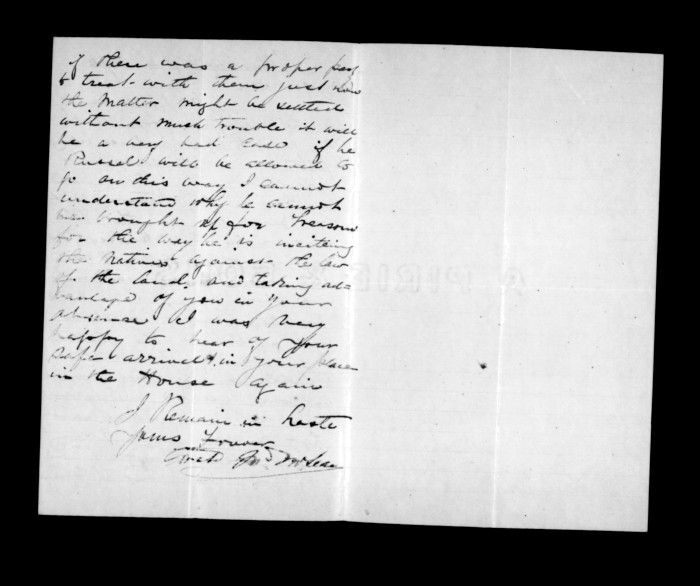 if there was a proper
to treat with them just now
the Matter might be settled
without much trouble it will
be a very bad if he
Russel will be allowed to
go on this way I cannot
understand why he cannot
be brought up for Treason
for the way he is inciting
the natives against the law
of the land. and taking ad=
vantage of you in your
absence I was very
happy to hear of your
safe arrival in your place
in the House again
I Remain in haste
yours
McLean
PIRIE